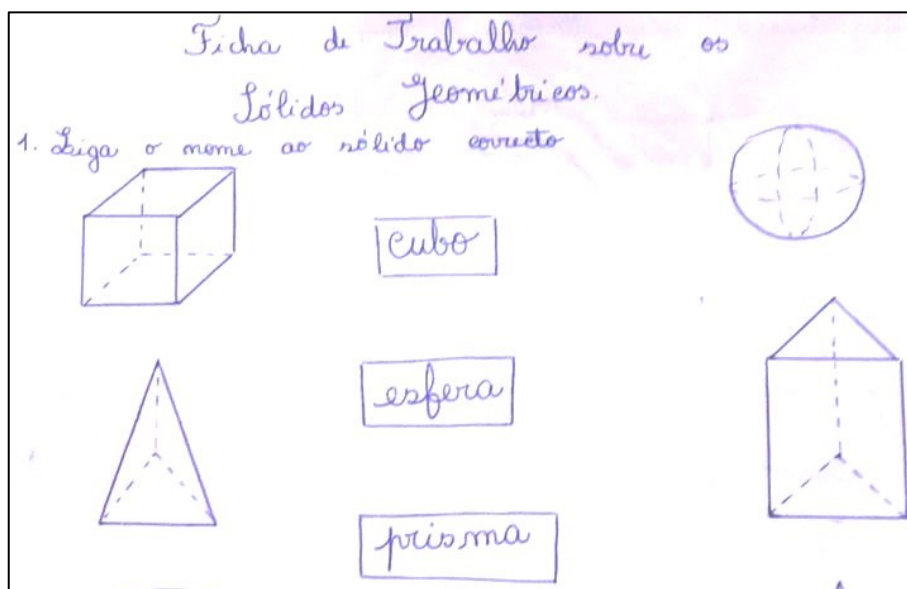 Ficha de Trabalho sobre os
Sólidos Geométricos.
1. Liga o nome ao sólido correcto
cubo
esfera
prisma